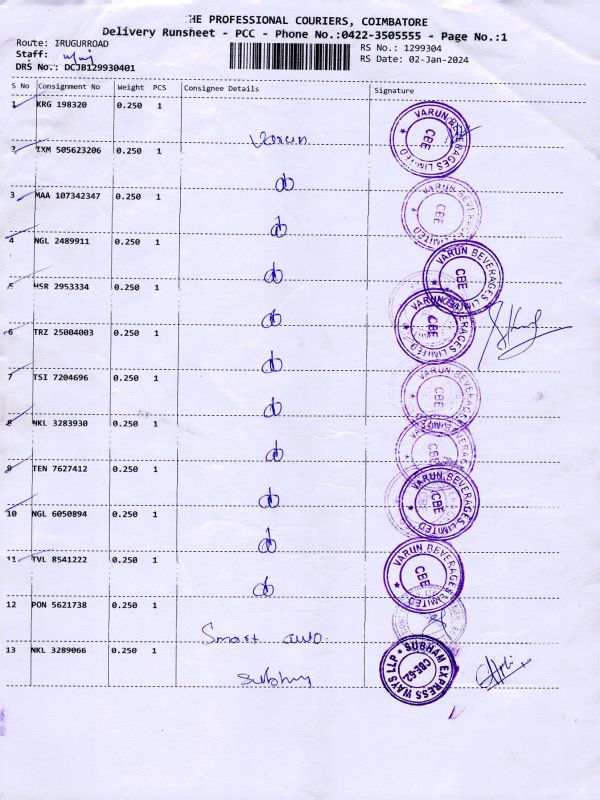 THE PROFESSIONAL COURIERS, COIMBATORE
Delivery Runsheet - PCC - Phone No.:0422-3505555 - Page No.:1
Route: IRUGURROAD
RS No.: 1299304
Staff:
RS Date: 02-Jan-2024
DRS No.: DCJB129930401
S No Consignment No Weight PCS Consignee Details Signature
1 KRG 198320 0.250 1
Varun
VARUN BEVERAGES LIMITED * CBE
2 IXM 505623206 0.250 1
do
3 MAA 107342347 0.250 1
VARUN BEVERAGES LIMITED * CBE
do
4 NGL 2489911 0.250 1
do
VARUN BEVERAGES LIMITED * CBE
5 HSR 2953334 0.250 1
do
6 TRZ 25004003 0.250 1
VARUN BEVERAGES LIMITED * CBE
do
7 TSI 7204696 0.250 1
VARUN BEVERAGES LIMITED * CBE
do
8 NKL 3283930 0.250 1
do
VARUN BEVERAGES LIMITED * CBE
9 TEN 7627412 0.250 1
do
VARUN BEVERAGES LIMITED * CBE
10 NGL 6050894 0.250 1
do
11 TVL 8541222 0.250 1
VARUN BEVERAGES LIMITED * CBE
do
12 PON 5621738 0.250 1
Smart auto
13 NKL 3289066 0.250 1
SUBHAM EXPRESS WAYS LLP * CBE-62
Subham